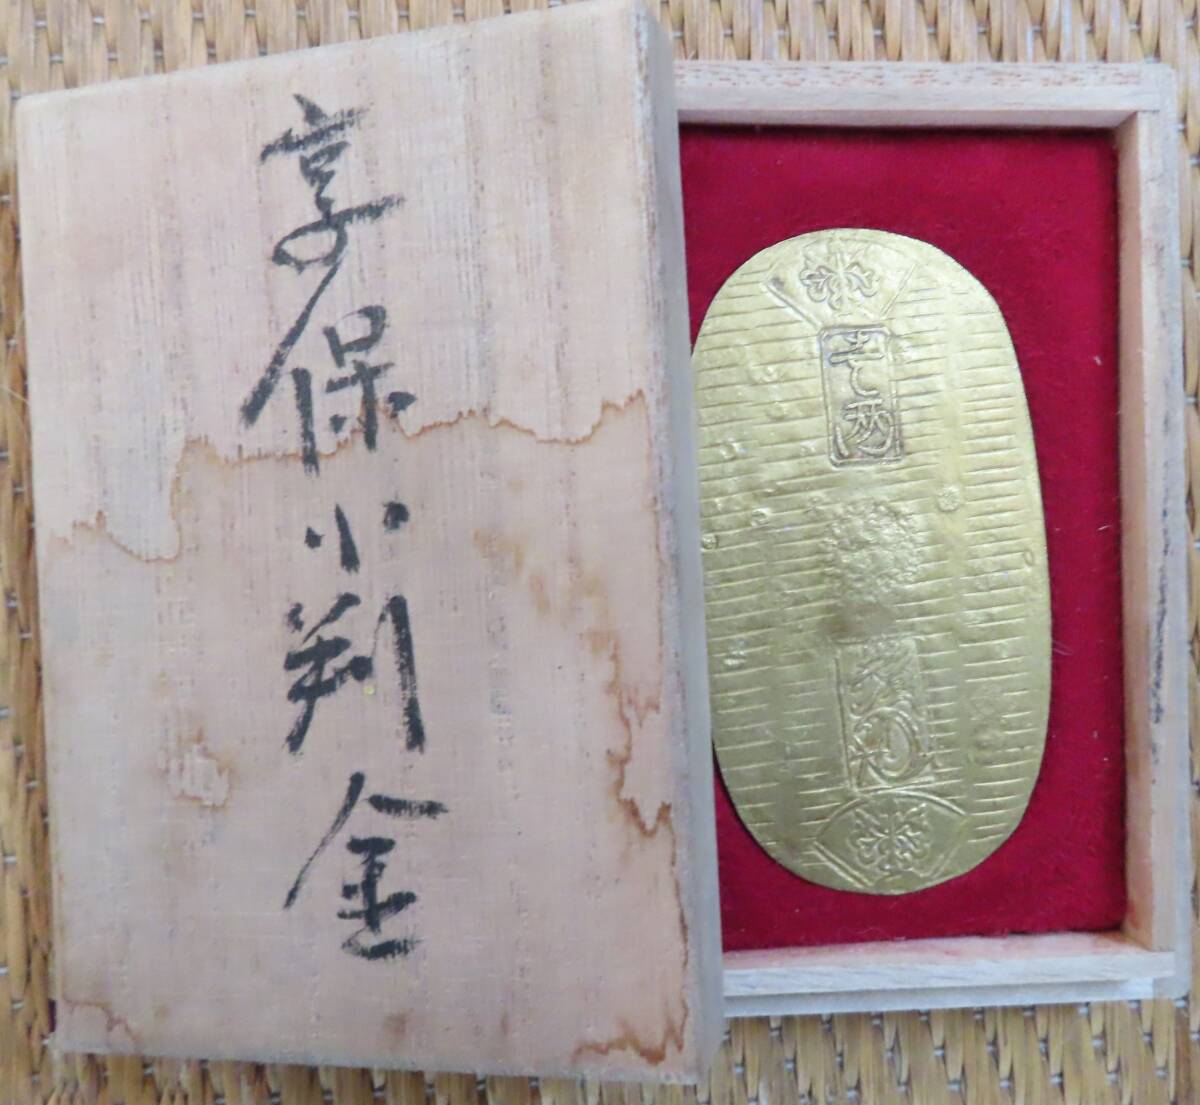 享保小判金
壹两
光次